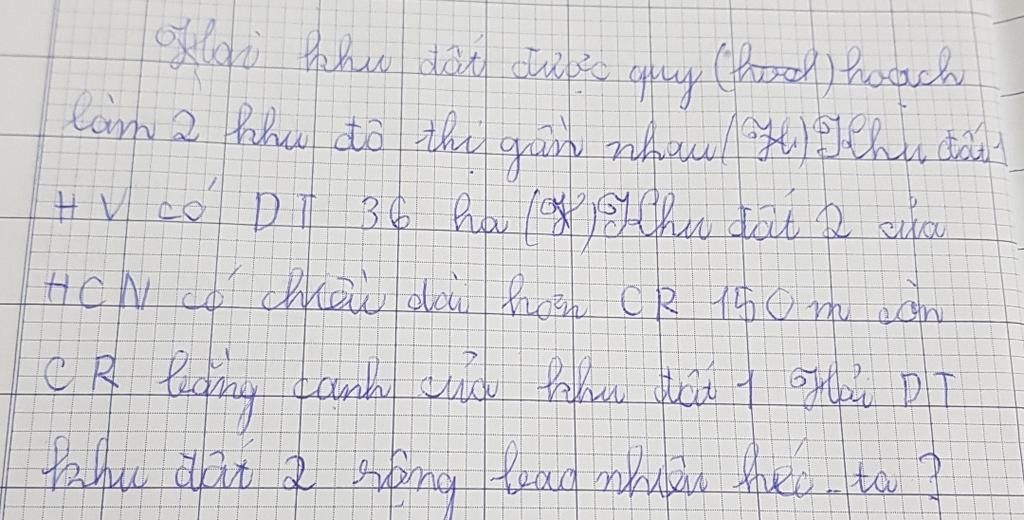 Hai khu đất được quy (hoach) hoạch
làm 2 khu đô thị gần nhau (H) Khu đất 1
HV có DT 36 ha (K) Khu đất 2 của
HCN có chiều dài hơn CR 150 m còn
CR bằng cạnh của khu đất 1 Hỏi DT
khu đất 2 rộng bao nhiêu héc-ta?